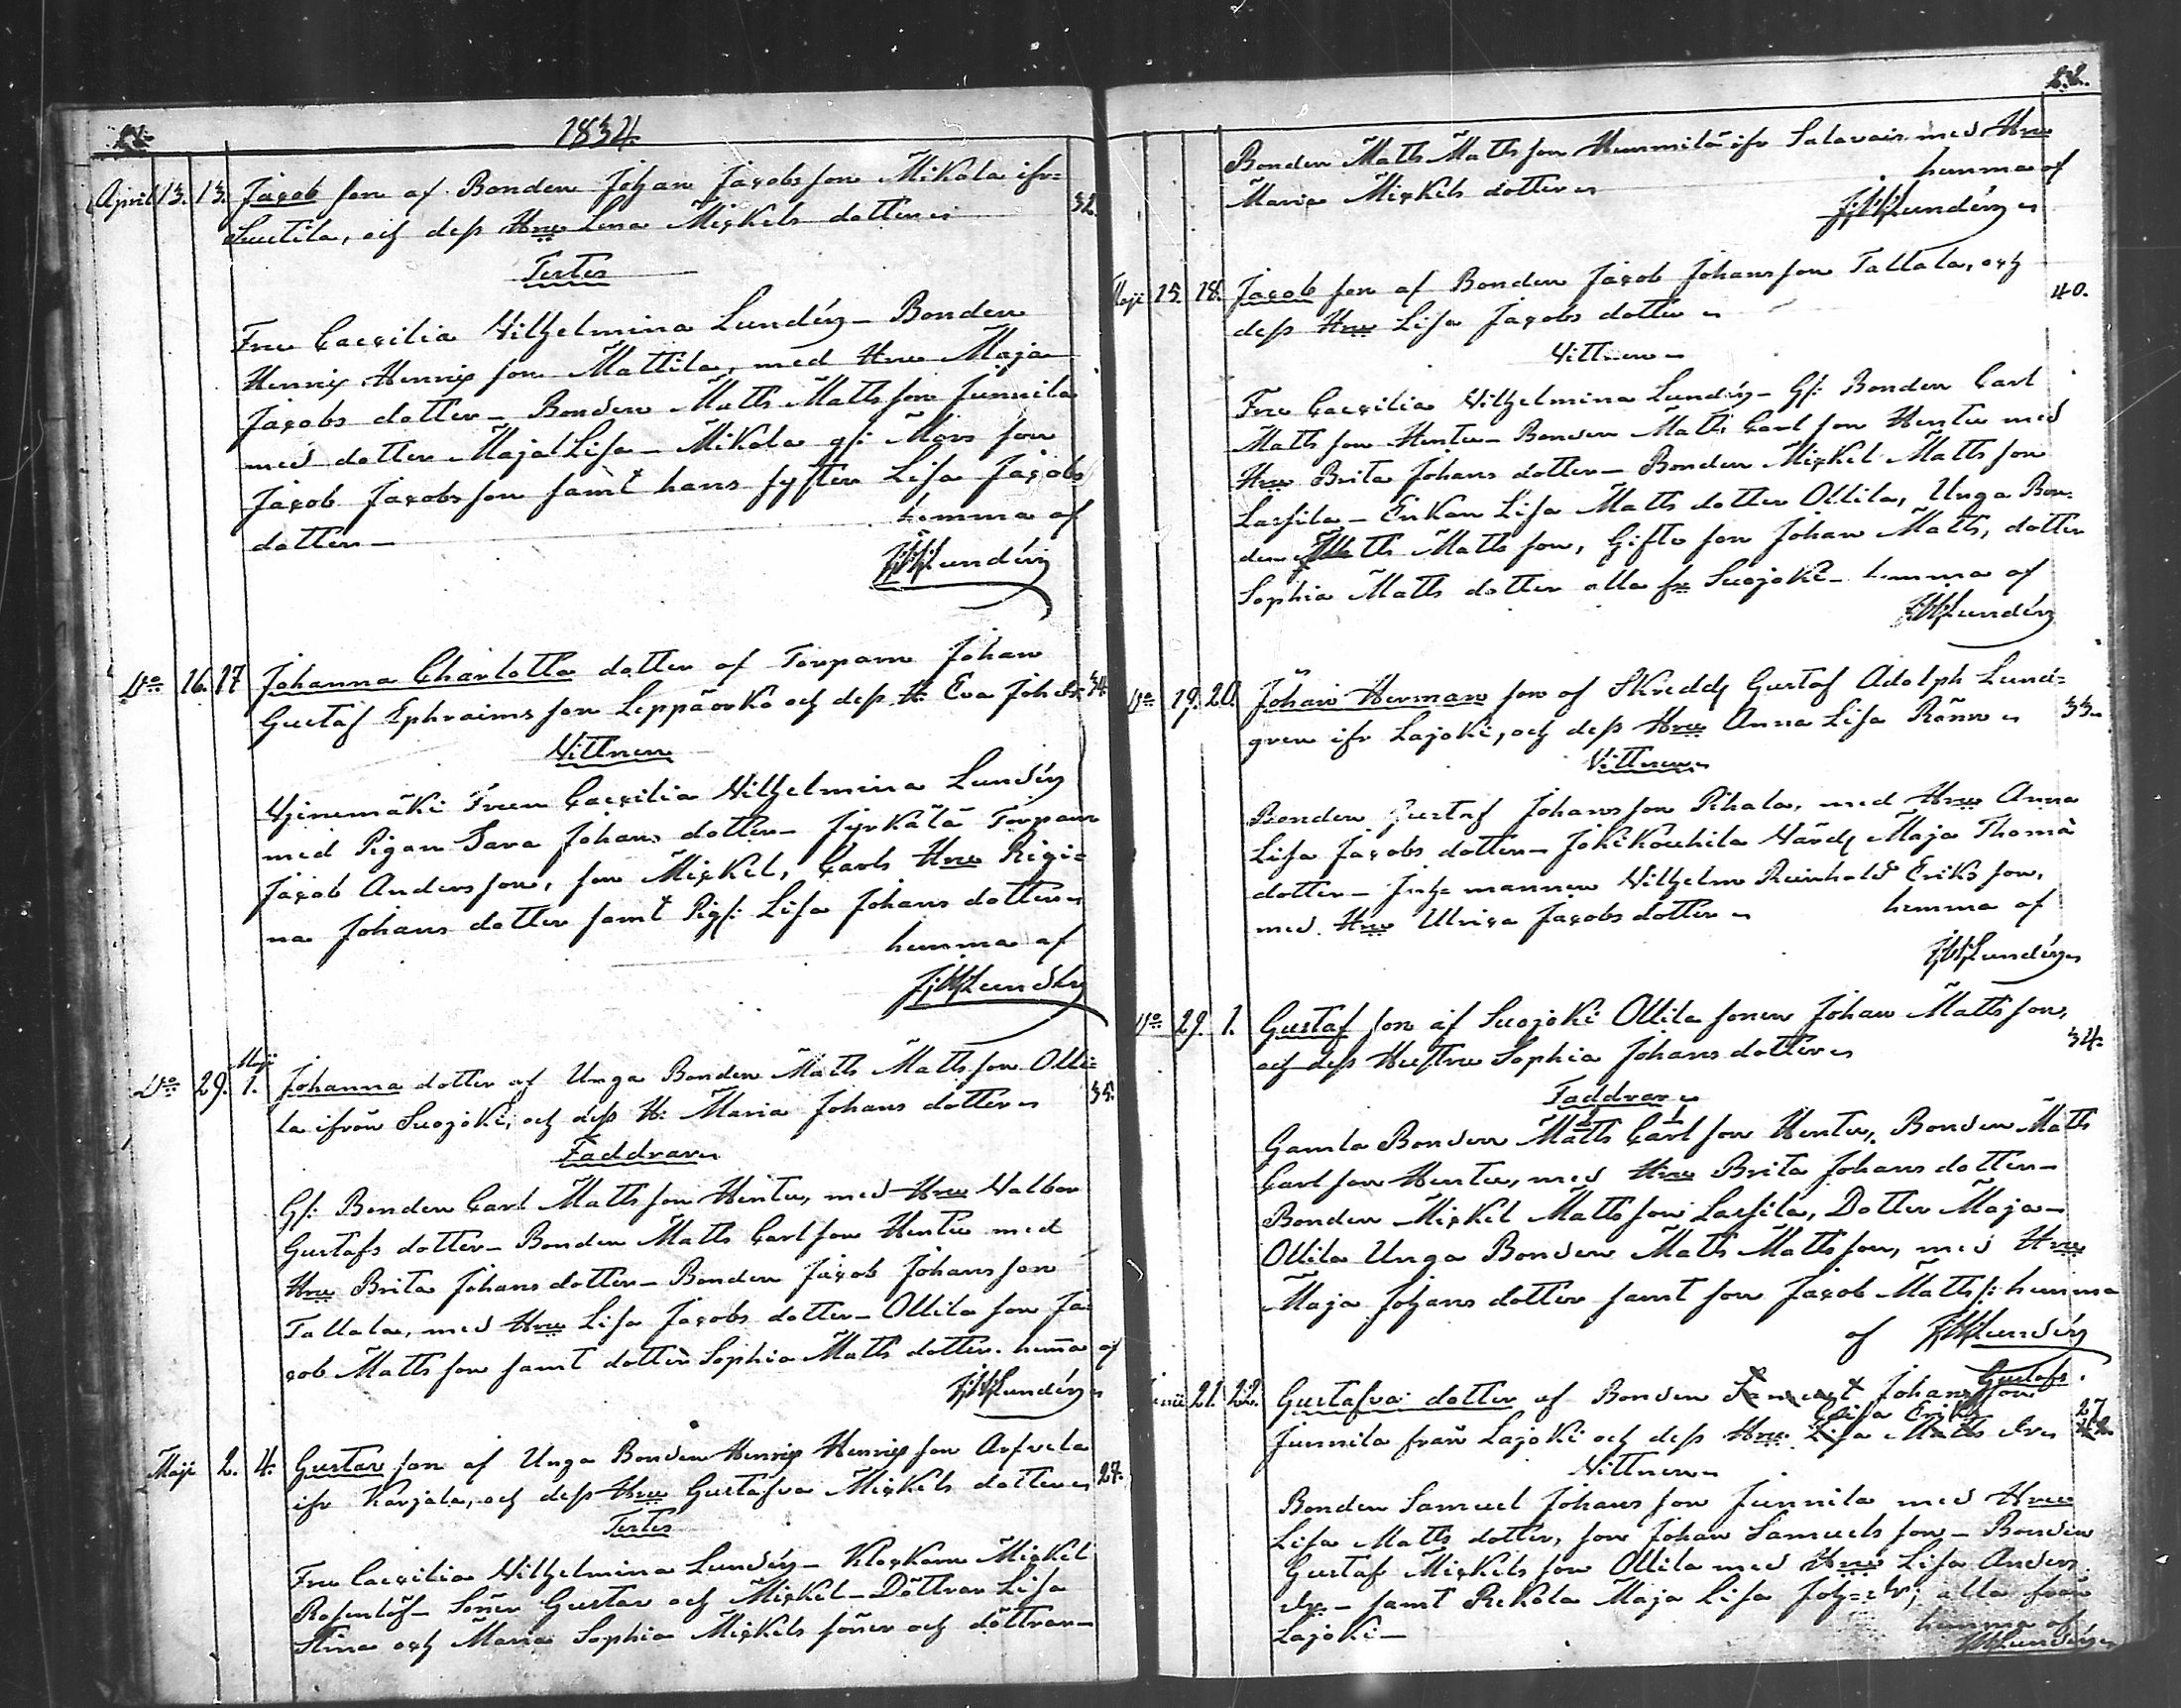 1834.
April 13. 13. Jacob son af Bonden Johan Jacobs son Mikola ifr=
Suutila, och dess Hru Lena Michels dotter 32.
Testes
Fru Caecilia Vilhelmina Lundén – Bonden
Henric Henrics son Mattila, med Hru Maja
Jacobs dotter – Bonden Matts Matts son Junnila
med dotter Maja Lisa – Mikola gs: Mors son
Jacob Jacobs son samt hans syster Lisa Jacobs
dotter – hemma af
Lundén
Do 16. 17 Johanna Charlotta dotter af Torparn Johan
Gustaf Ephraims son Leppäorko och dess H: Eva Joh. dr. 34.
Vittnen
Fruen Caecilia Vilhelmina Lundén
med Pigan Sara Johans dotter – Jyrkälä Torparn
Jacob Anders son, son Michel, Carls Hru Rigi=
na Johans dotter samt Pig: Lisa Johans dotter
hemma af
Lundén
Maji
Do 29. 1. Johanna dotter af Unga Bonden Matts Matts son Olli=
la ifrån Suojoki, och dess H: Maria Johans dotter 35.
Faddrar
Gl: Bonden Carl Matts son Hentu, med Hru Valbor
Gustafs dotter – Bonden Matts Carl son Hentu med
Hru Brita Johans dotter – Bonden Jacob Johans son
Tallala, med Hru Lisa Jacobs dotter – Ollila son Ja=
cob Matts son samt dotter Sophia Matts dotter. hemma af
Lundén
Maji 2. 4. Gustav son af Unga Bonden Henric Henrics son Arfvela
ifr Karjala, och dess Hru Gustafva Michels dotter 27.
Testes
Fru Caecilia Vilhelmina Lundén – Klockarn Michel
Rosenlöf – Söner Gustav och Michel – Döttrar Lisa
Stina och Maria Sophia Michels söner och döttrar –
Bonden Matts Matts son Hunnilä ifr Salavais med Hru
Maria Michels dotter hemma af
Lundén
Maji 15. 18. Jacob son af Bonden Jacob Johans son Tallala, och
dess Hru Lisa Jacobs dotter 40.
Vittnen
Fru Caecilia Vilhelmina Lundén – Gl: Bonden Carl
Matts son Hentu – Bonden Matts Carl son Hentu med
Hru Brita Johans dotter – Bonden Michel Matts son
Lassila – Enkan Lisa Matts dotter Ollila, Unga Bon=
den Matts Matts son, Gifte son Johan Matts, dotter
Sophia Matts dotter alla fr Suojoki – hemma af
Lundén
Do 19. 20. Johan Herman son af Skredd Gustaf Adolph Lund=
gren ifr Lajoki, och dess Hru Anna Lisa Rönn 33.
Vittnen
Bonden Gustaf Johans son Pihala, med Hru Anna
Lisa Jacobs dotter – Jokikouhila Värd Maja Thomä
dotter – mannen Vilhelm Reinhold Eriks son,
med Hru Ulrica Jacobs dotter hemma af
Lundén
Do 29. 1. Gustaf son af Suojoki Ollila sonen Johan Matts son,
och dess Hustru Sophia Johans dotter 34.
Faddrar
Gamla Bonden Matts Carl son Hentu, Bonden Matts
Carl son Hentu, med Hru Brita Johans dotter –
Bonden Michel Matts son Lassila, Dotter Maja –
Ollila Unga Bonden Matts Matts son, med Hru
Maja Johans dotter samt son Jacob Matts s: hemma
af Lundén
Gustafs
Junii 21. 22. Gustafva dotter af Bonden Samuel Johans son
Caisa Eriks
Junnila från Lajoki och dess Hru Lisa Matts dr 27
Vittnen
Bonden Samuel Johans son Junnila med Hru
Lisa Matts dotter, son Johan Samuels son – Bonden
Gustaf Michels son Ollila med Hru Lisa Anders
dr – samt Rekola Maja Lisa Joh=dr; alla från
Lajoki – hemma af
Lundén